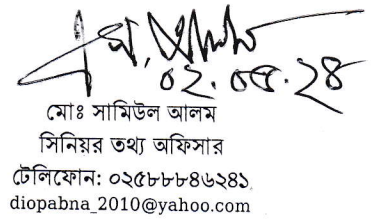 ০২.০৫.২৪
মোঃ সামিউল আলম
সিনিয়র তথ্য অফিসার
টেলিফোন: ০২৫৮৮৮৪৬২৪১
diopabna_2010@yahoo.com